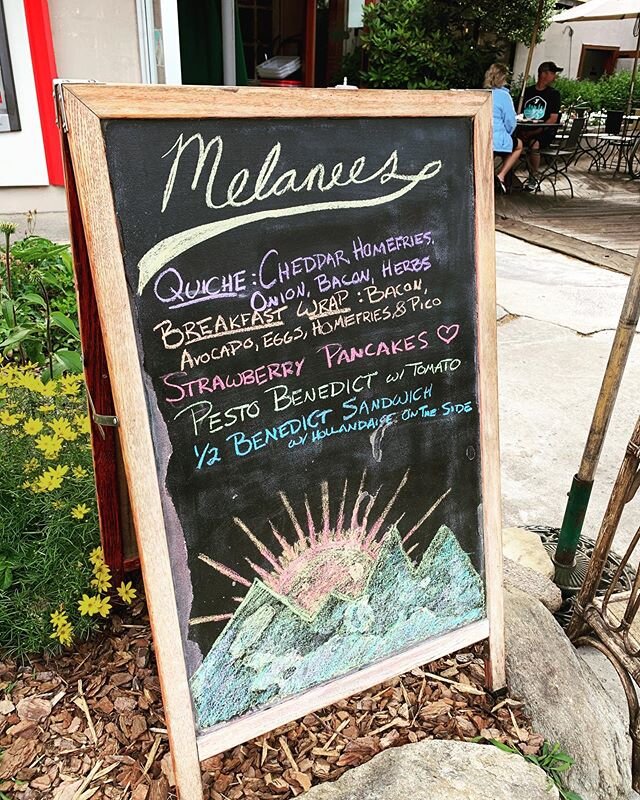 Melanees
QUICHE: CHEDDAR, HOMEFRIES,
ONION, BACON, HERBS
BREAKFAST WRAP: BACON,
AVOCADO, EGGS, HOMEFRIES, & PICO
STRAWBERRY PANCAKES ♡
PESTO BENEDICT W/ TOMATO
1/2 BENEDICT SANDWICH
W/ HOLLANDAISE ON THE SIDE